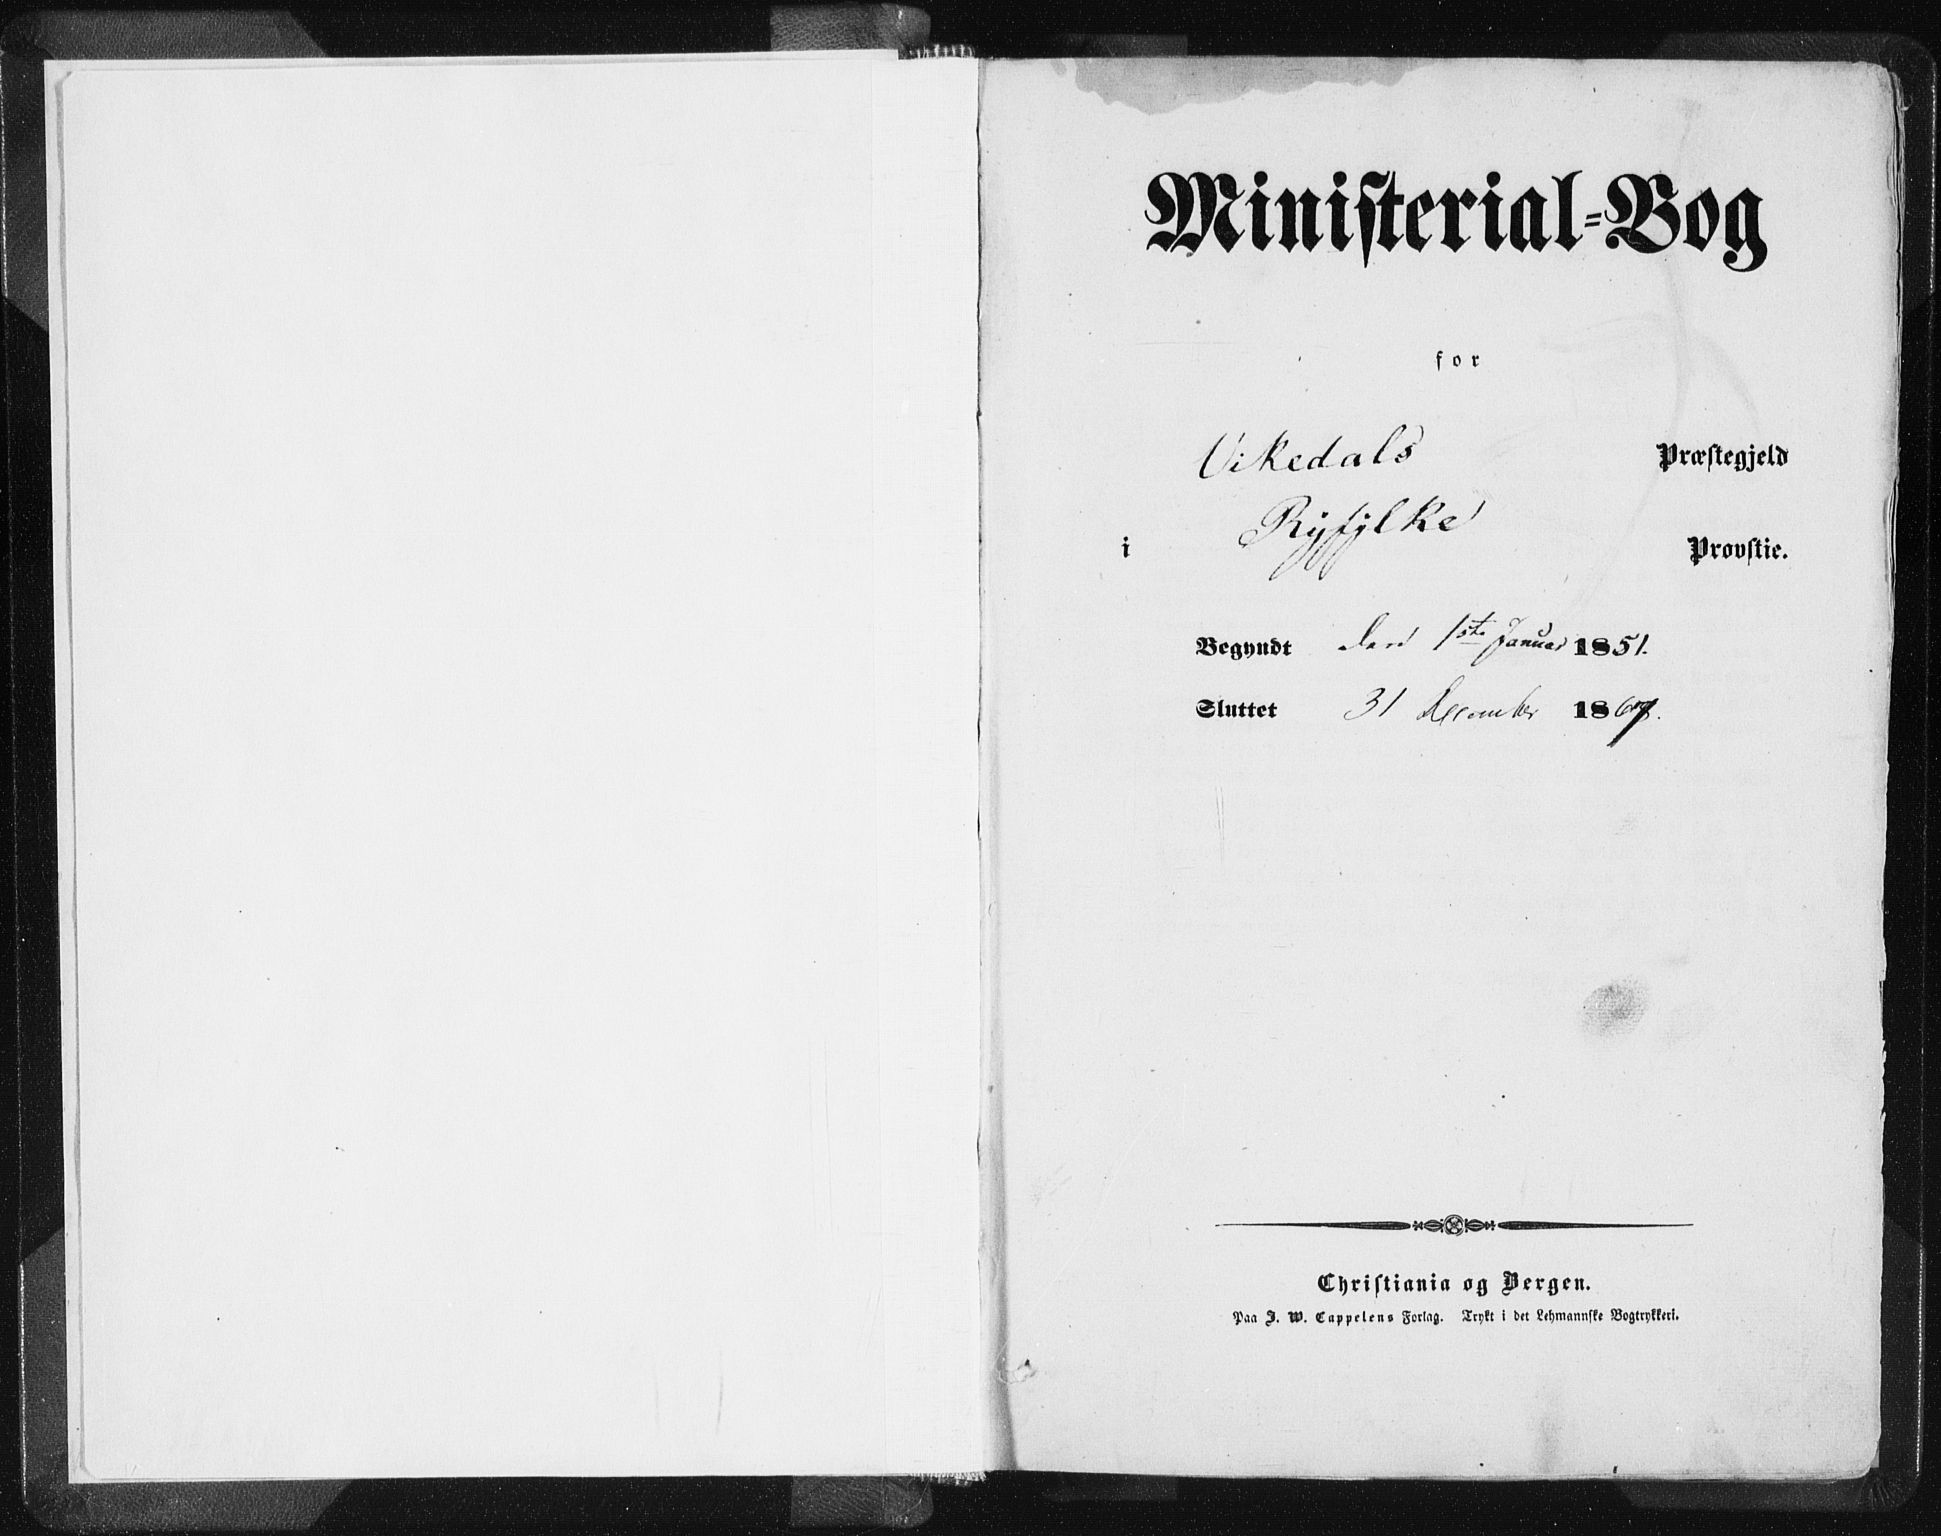 Ministerial-Bog
for
Vikedals Præstegjeld
i Ryfylke Provstie.
Begyndt den 1ste Januar 1851.
Sluttet 31 December
Christiania og Bergen.
Paa J. W. Cappelens Forlag. Trykt i det Lehmannske Bogtrykkeri.